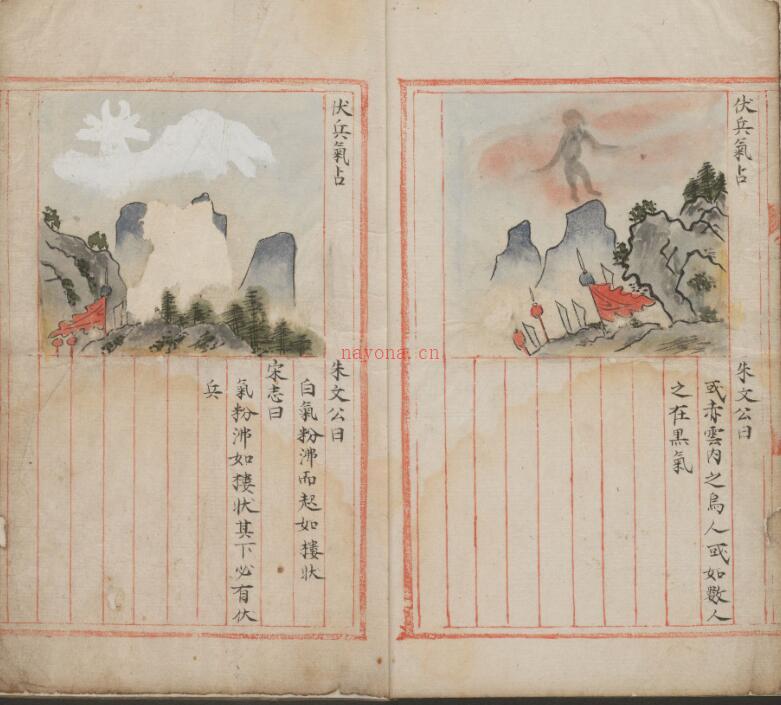 伏兵氣占
朱文公曰
或赤雲内之烏人或如數人
之在黒氣
伏兵氣占
朱文公曰
白氣粉沸而起如樓狀
宋志曰
氣粉沸如樓狀其下必有伏
兵
nayona.cn